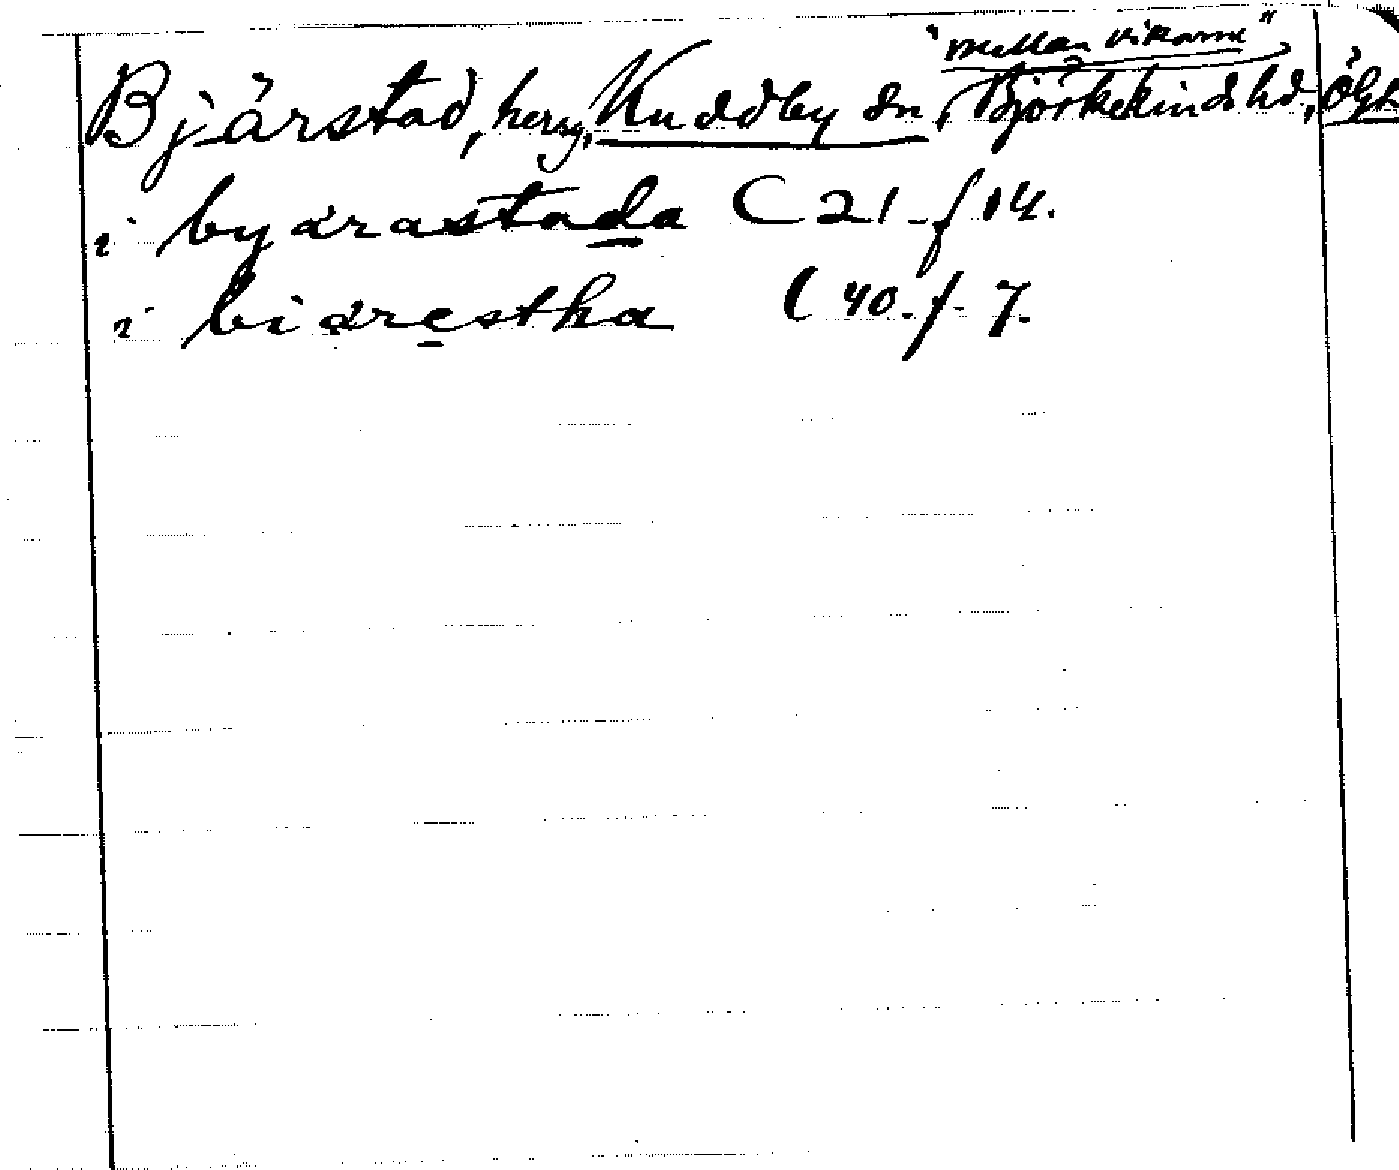 "mellan vikarne"
Bjärstad, herrg, Kuddby sn, Björkekinds hd, Ögl
i byarastada C 21 f 14.
i biarestha C 40 f. 7.